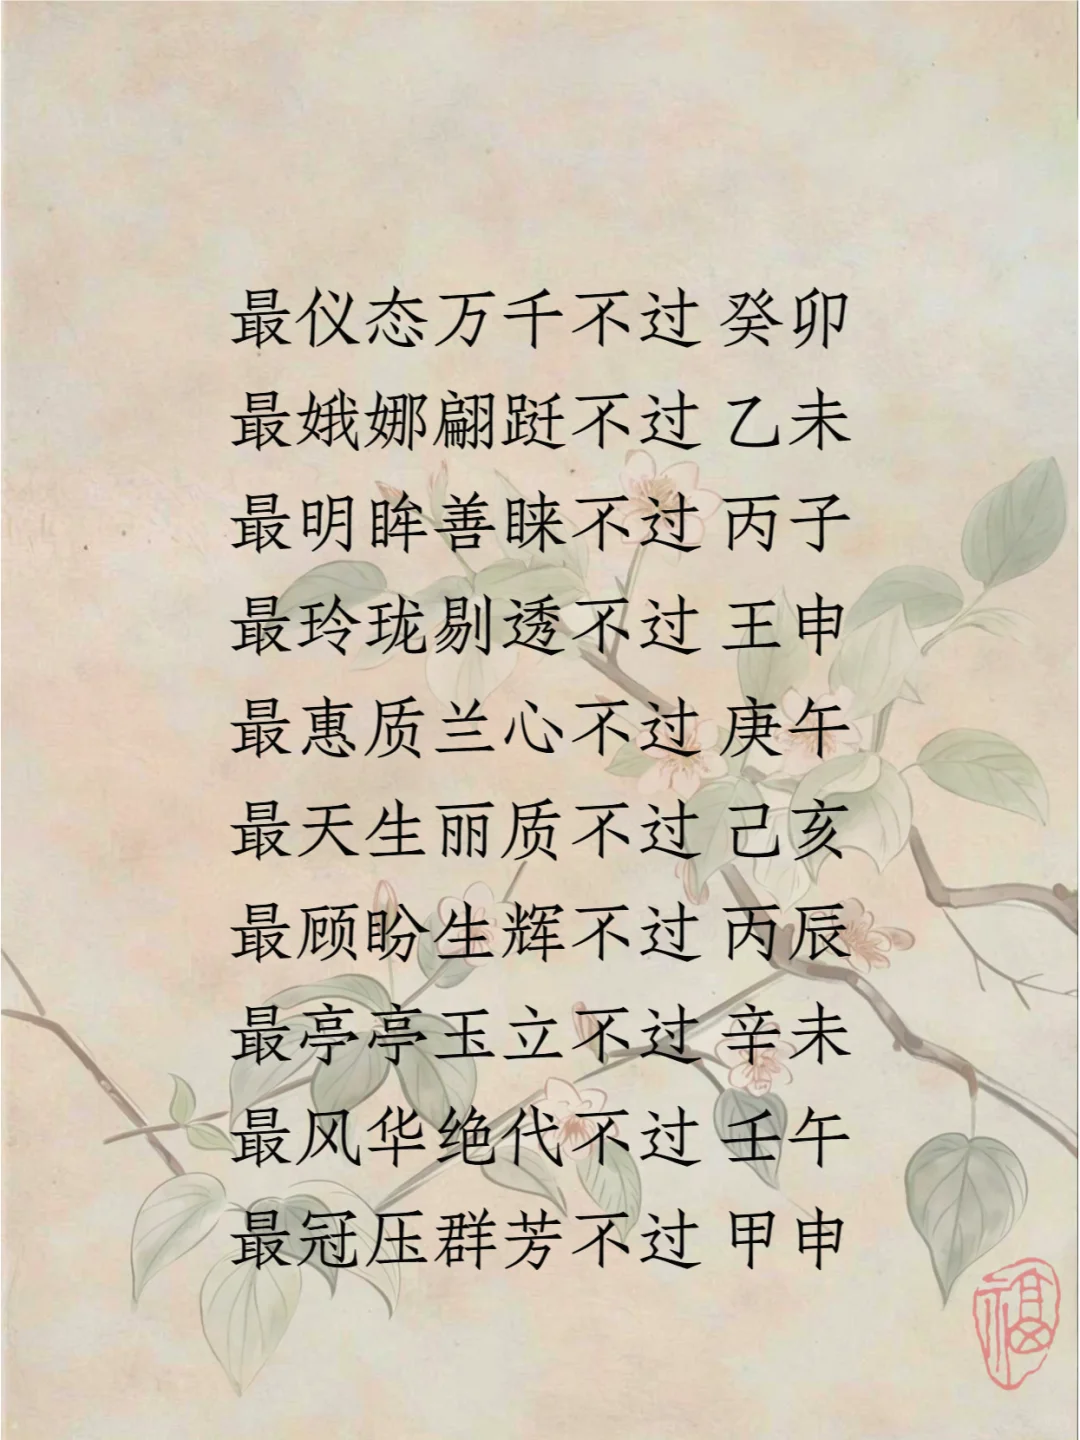 最仪态万千不过 癸卯
最娥娜翩跹不过 乙未
最明眸善睐不过 丙子
最玲珑剔透不过 王申
最惠质兰心不过 庚午
最天生丽质不过 己亥
最顾盼生辉不过 丙辰
最亭亭玉立不过 辛未
最风华绝代不过 壬午
最冠压群芳不过 甲申
福